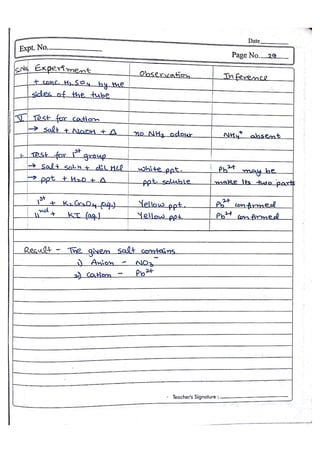 Date
Expt. No.
Page No. 29
S.No Experiment Observation Inference
+ conc. H2SO4 by the
sides of the tube
V Test for cation
→ salt + NaOH + Δ no NH3 odour NH4+ absent
Test for 1st group
→ salt soln + dil HCl white ppt. Pb2+ may be
→ ppt + H2O + Δ ppt soluble make its two parts
1st + K2CrO4 (aq.) Yellow ppt. Pb2+ confirmed
IInd + KI (aq.) Yellow ppt Pb2+ confirmed
Result - The given salt contains
1) Anion - NO3-
2) Cation - Pb2+
Teacher's Signature :